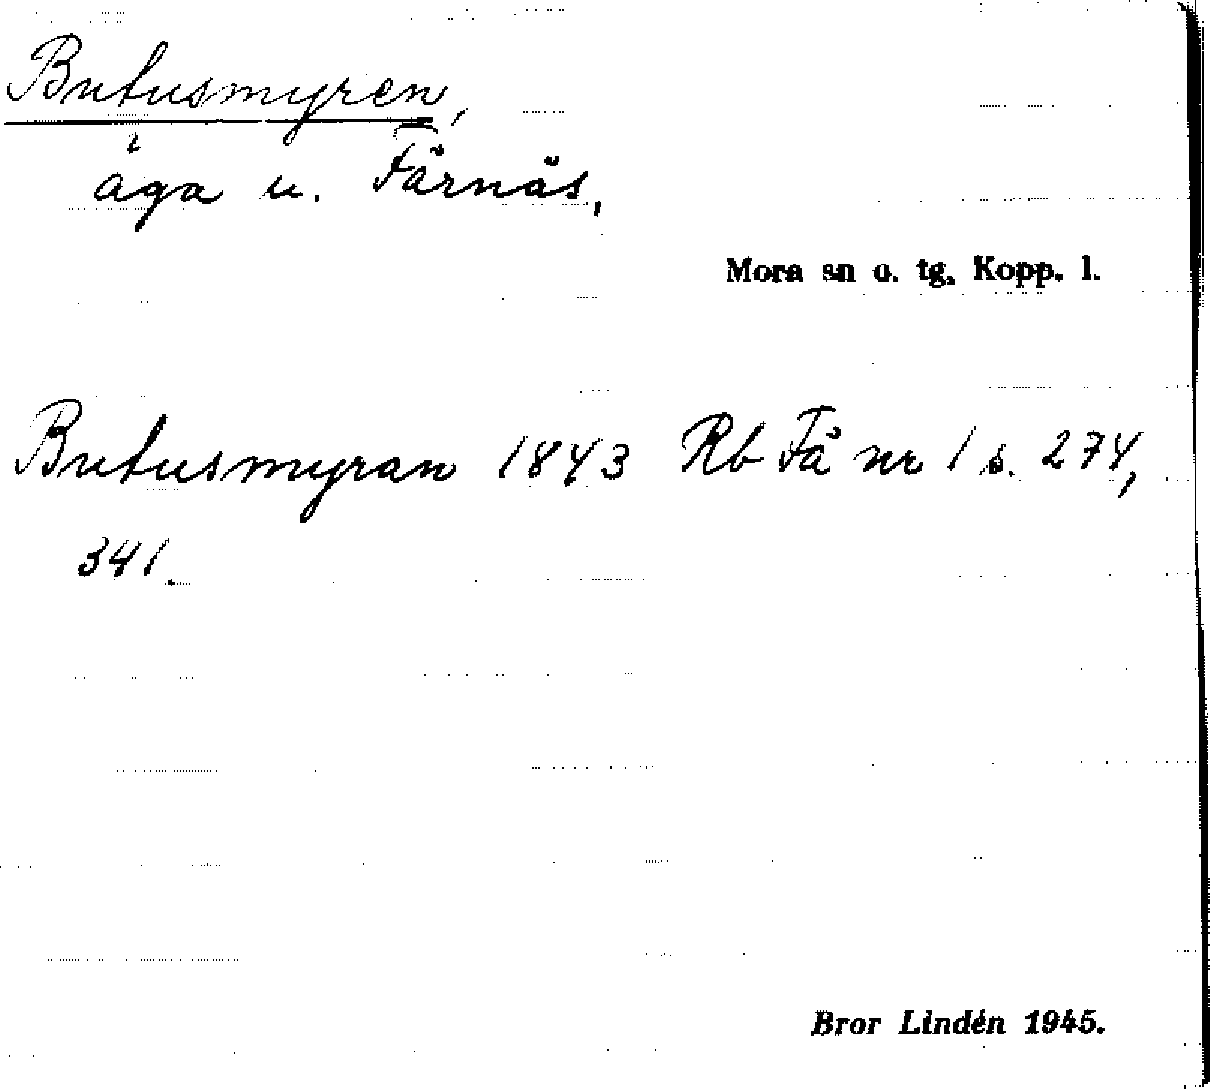 Brutusmyren,
äga u. Färnäs,
Mora sn o. tg, Kopp. l.
Brutusmyran 1843 Rb Få nr 1 s. 274,
341.
Bror Lindén 1945.